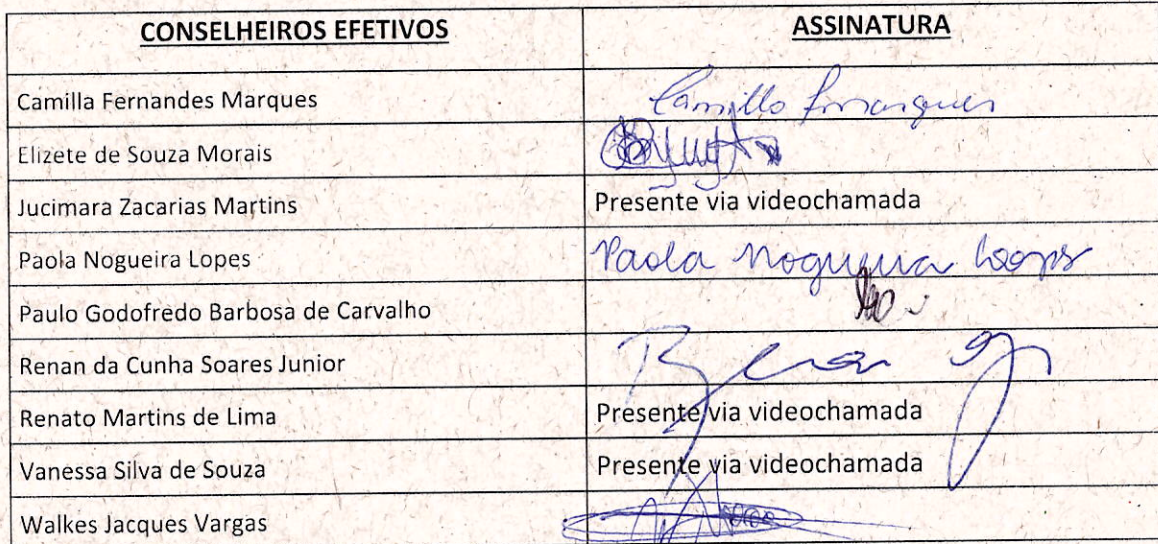 CONSELHEIROS EFETIVOS ASSINATURA
Camilla Fernandes Marques Camilla
Elizete de Souza Morais
Jucimara Zacarias Martins Presente via videochamada
Paola Nogueira Lopes Paola Nogueira Lopes
Paulo Godofredo Barbosa de Carvalho
Renan da Cunha Soares Junior Renan
Renato Martins de Lima Presente via videochamada
Vanessa Silva de Souza Presente via videochamada
Walkes Jacques Vargas